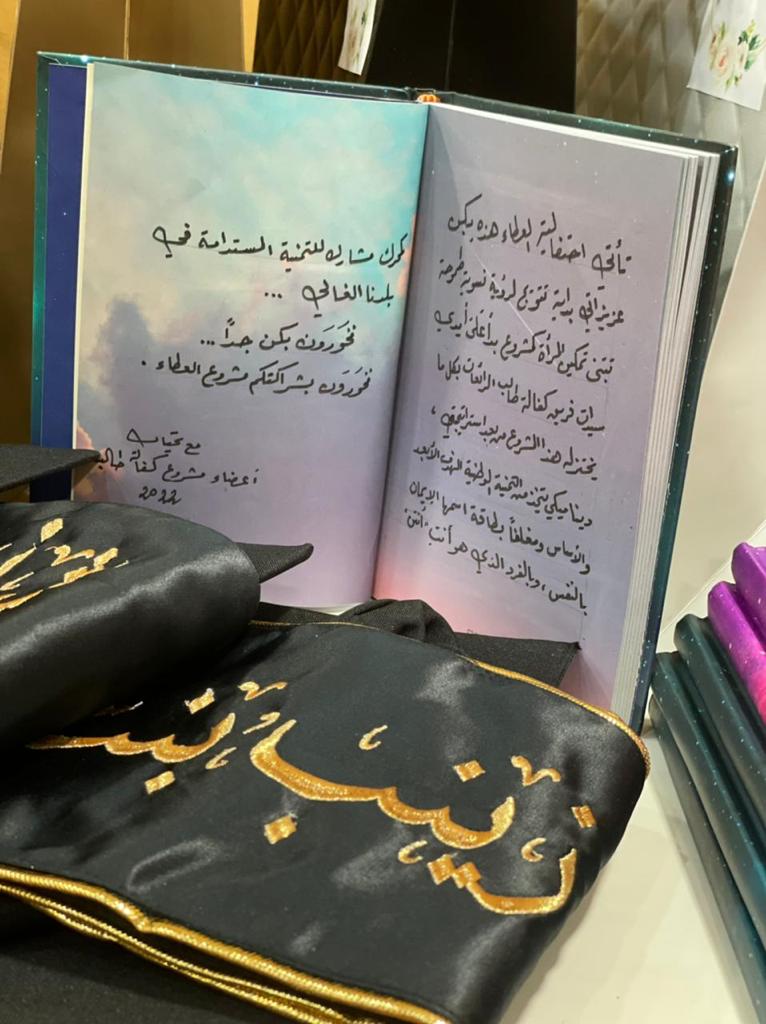 تأتي احتفالية العطاء هذه بكن
عزيزاتي بداية تتويج لرؤية نسوية طموحة
تبنى تمكين المرأة كمشروع بدأ على أيدي
سيدات فريق كفالة طالب الرائعات بكل ما
يختزله هذا المشروع من بعد استراتيجي ،
ديناميكي يتخذ من التنمية الوطنية الهدف الأبعد
والأساس ومغلفاً بطاقة اسمها الإيمان
بالنفس ، وبالفرد الذي هو أنتِ "أنتن"
كمحرك مشارك للتنمية المستدامة في
بلدنا الغالي ...
فخورون بكن جدًّا ...
فخورون بشراكتكم مشروع العطاء .
مع تحيات
أعضاء مشروع كفالة طالب
2022
زينب